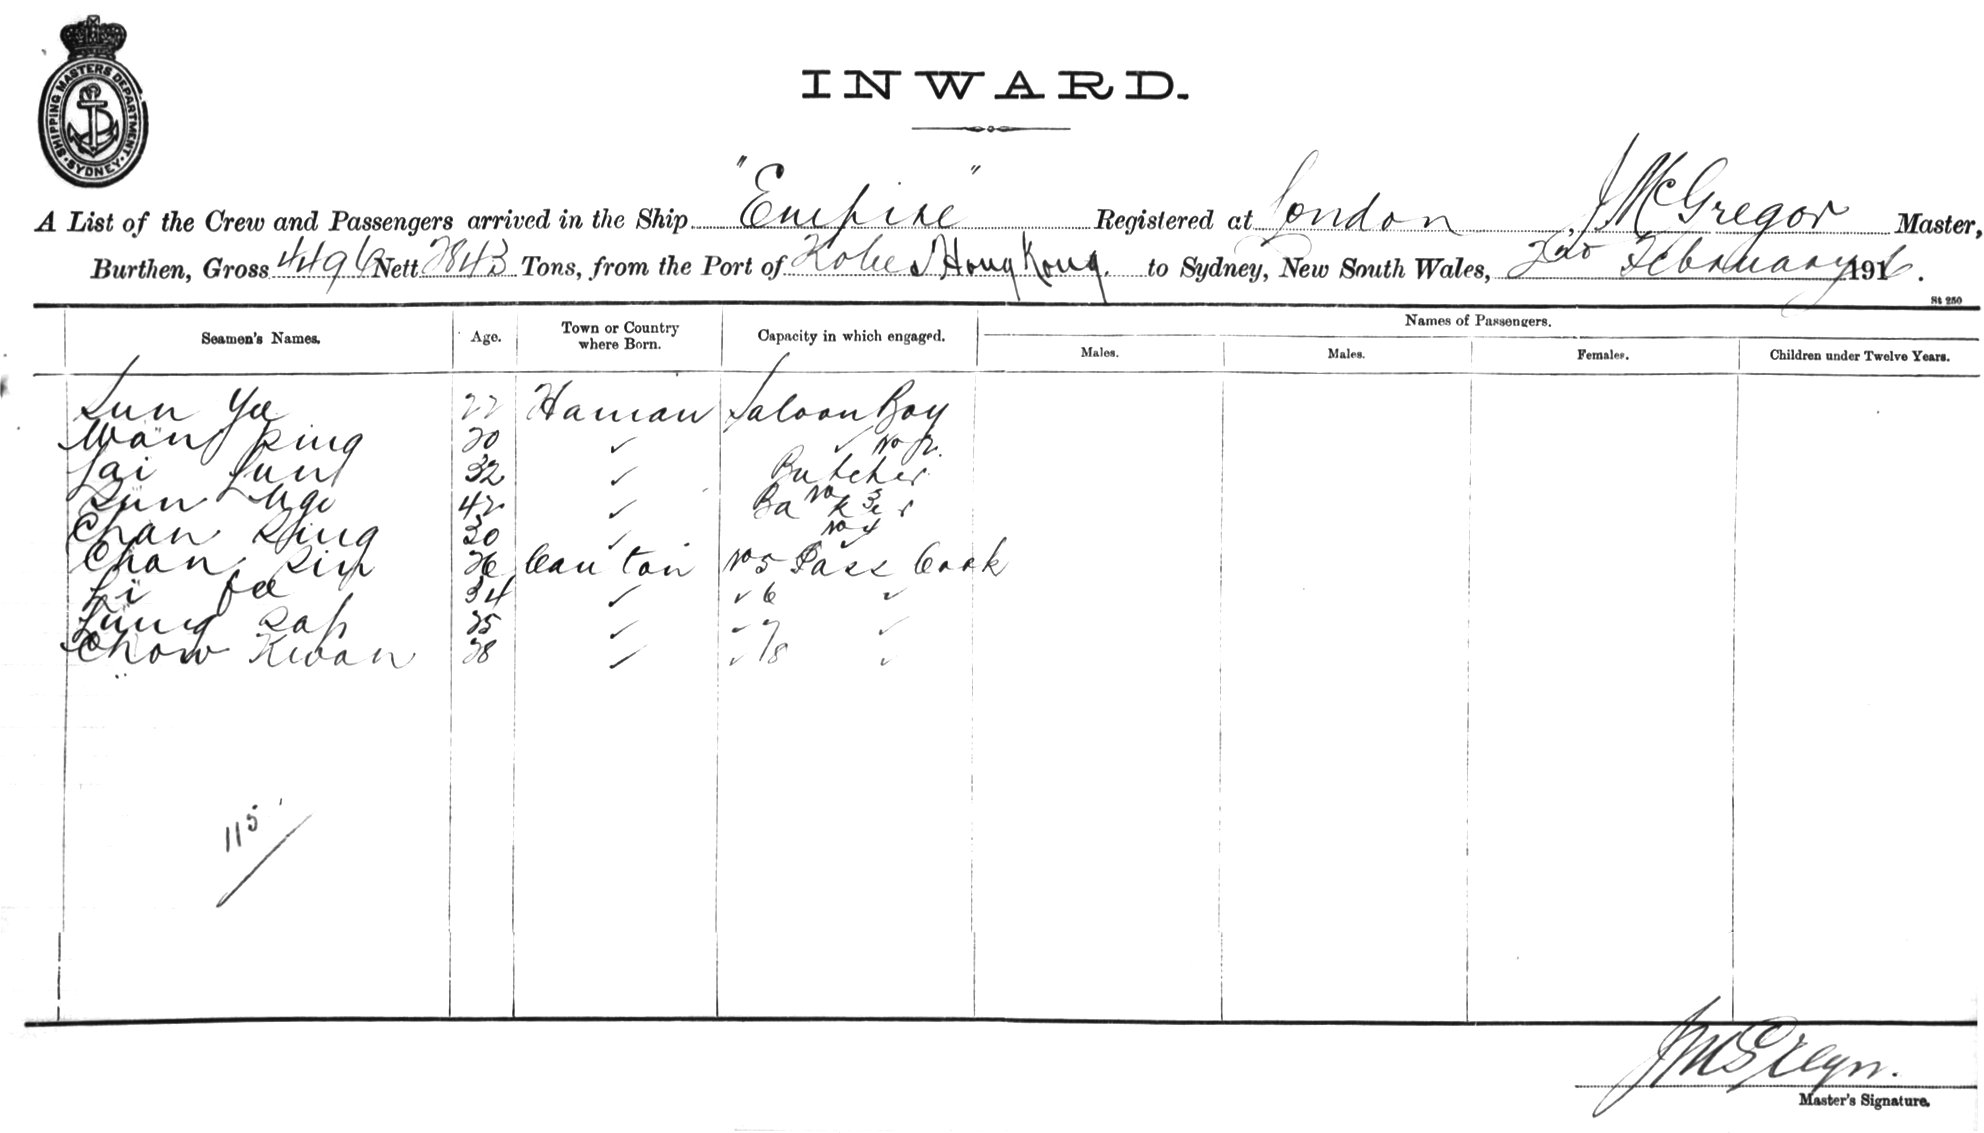 SHIPPING MASTERS DEPARTMENT. SYDNEY
INWARD.
A List of the Crew and Passengers arrived in the Ship "Empire" Registered at London, J McGregor Master,
Burthen, Gross 4496 Nett 2843 Tons, from the Port of Kobe & Hong Kong. to Sydney, New South Wales, 2nd February 1916.
St 250
Seamen's Names. Age. Town or Country where Born. Capacity in which engaged. Names of Passengers.
Males. Males. Females. Children under Twelve Years.
Sun Yee 22 Hainan Saloon Boy
Wong King 20 ✓ ✓ No 2.
Lai Fung 32 ✓ Butcher
42 ✓ Baker No 3
Chan King 30 ✓ No 4 ✓
Chan 26 Canton No 5 Pass Cook
Li Fee 34 ✓ ✓ 6 ✓
Sap 25 ✓ ✓ 7 ✓
Chow Kwan 28 ✓ ✓ 8 ✓
115
Master's Signature.